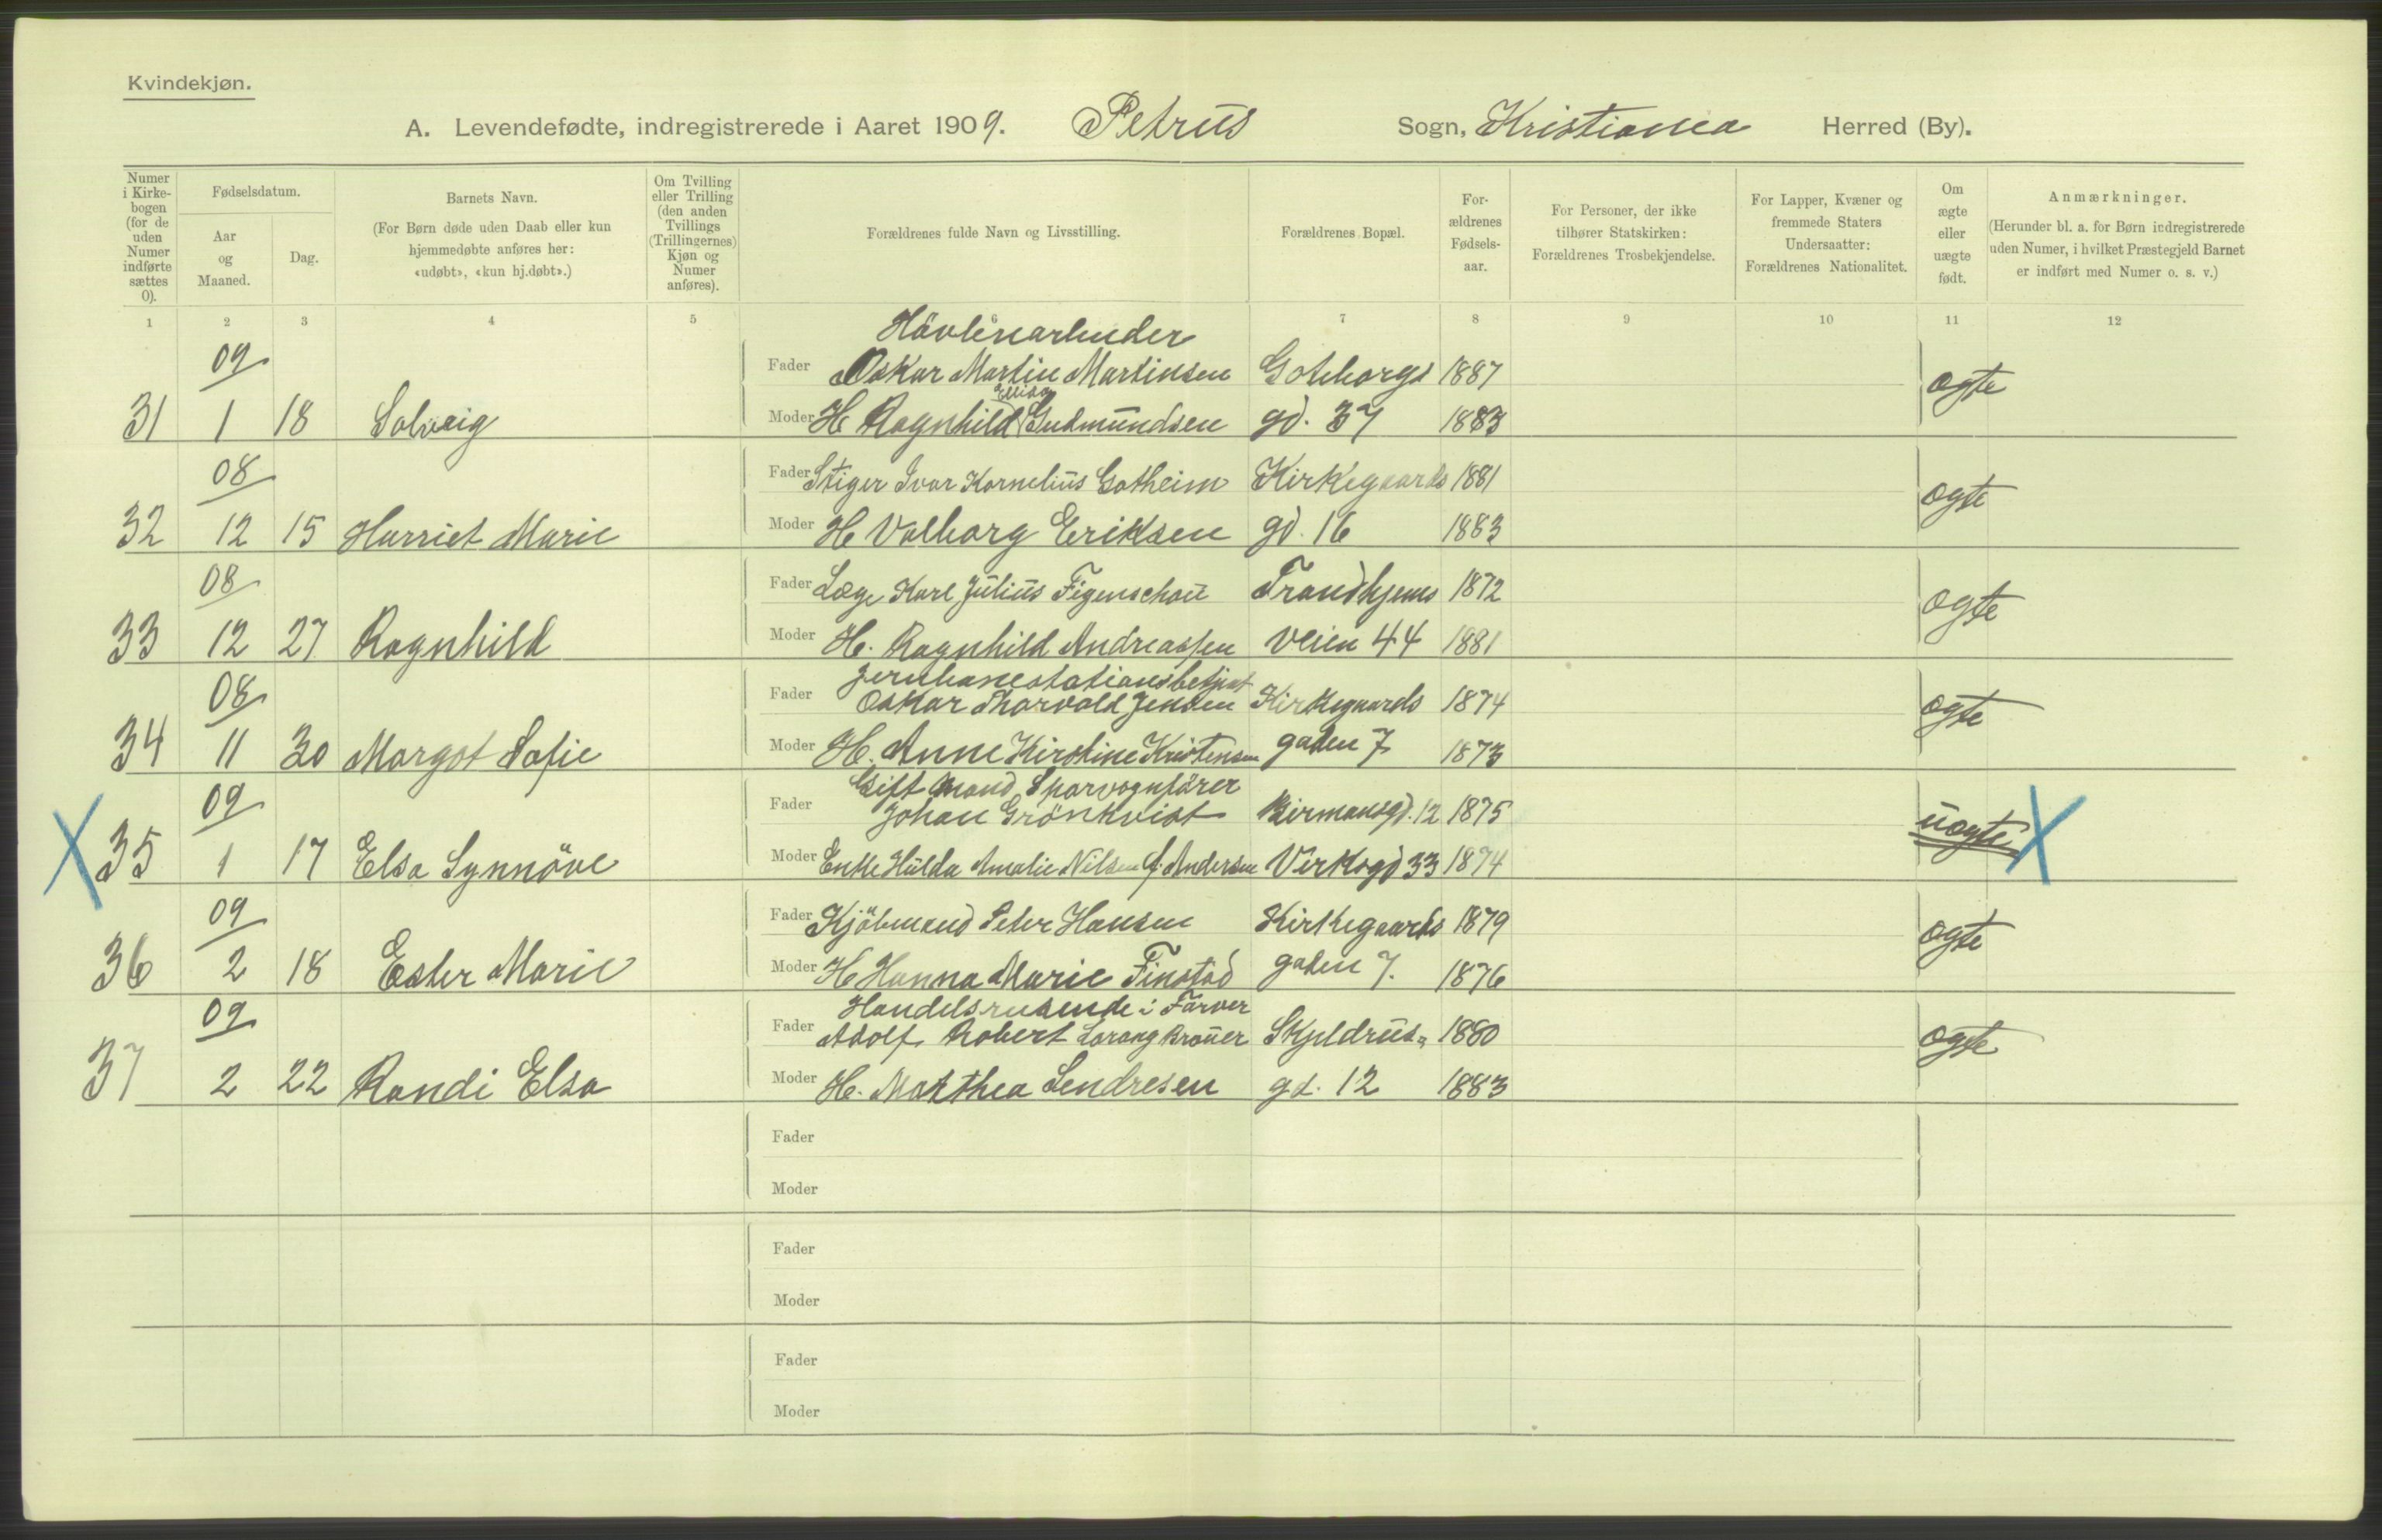 Kvindekjøn.
A. Levendefødte, indregistrerede i Aaret 1909. Petrus Sogn, Kristiania Herred (By).
Numer i Kirke-bogen (for de uden Numer indførte sættes 0).
Fødselsdatum.
Aar og Maaned.
Dag.
Barnets Navn.
(For Børn døde uden Daab eller kun hjemmedøbte anføres her: «udøbt», «kun hj.døbt».)
Om Tvilling eller Trilling (den anden Tvillings (Trillingernes) Kjøn og Numer anføres).
Forældrenes fulde Navn og Livsstilling.
Forældrenes Bopæl.
For-ældrenes Fødsels-aar.
For Personer, der ikke tilhører Statskirken: Forældrenes Trosbekjendelse.
For Lapper, Kvæner og fremmede Staters Undersaatter: Forældrenes Nationalitet.
Om ægte eller uægte født.
Anmærkninger.
(Herunder bl. a. for Børn indregistrerede uden Numer, i hvilket Præstegjeld Barnet er indført med Numer o. s. v.)
1 2 3 4 5 6 7 8 9 10 11 12
09
Fader Oskar Martin Martinsen Goteborgs 1887 ægte
Ellida
31 1 18 Solveig Moder H Ragnhild Gudmundsen gd. 37 1883
08 Fader Stiger Ivar Kornelius Gotheim Kirkegaards 1881 ægte
32 12 15 Harriet Marie Moder H Valborg Eriksen gd. 16 1883
08 Fader Læge Karl Julius Figenschou Trondhjems 1872 ægte
33 12 27 Ragnhild Moder H. Ragnhild Andreassen veien 44 1881
Jernbanestationsbetjent
08 Fader Oskar Thorvald Jensen Kirkegaards 1874 ægte
34 11 30 Margot Sofie Moder H. Anne Kirstine Kristensen gaden 7 1873
Gift Mand, Sporvognfører
09 Fader Johan Grönkvist Birmansgd. 12 1875 uægte
X 35 1 17 Elsa Synnöve Moder Enke Hulda Amalie Nilsen f. Andersen Verksgd 33 1874 X
09 Fader Kjöbmand Peter Hansen Kirkegaards 1879 ægte
36 2 18 Ester Marie Moder H Hanna Marie Finstad gaden 7. 1876
Handelsreisende i Farver
09 Fader Adolf Robert Lorang Brouer Skjeldrus- 1880 ægte
37 2 22 Randi Elsa Moder H. Marthea Sendresen gd. 12 1883
Fader
Moder
Fader
Moder
Fader
Moder